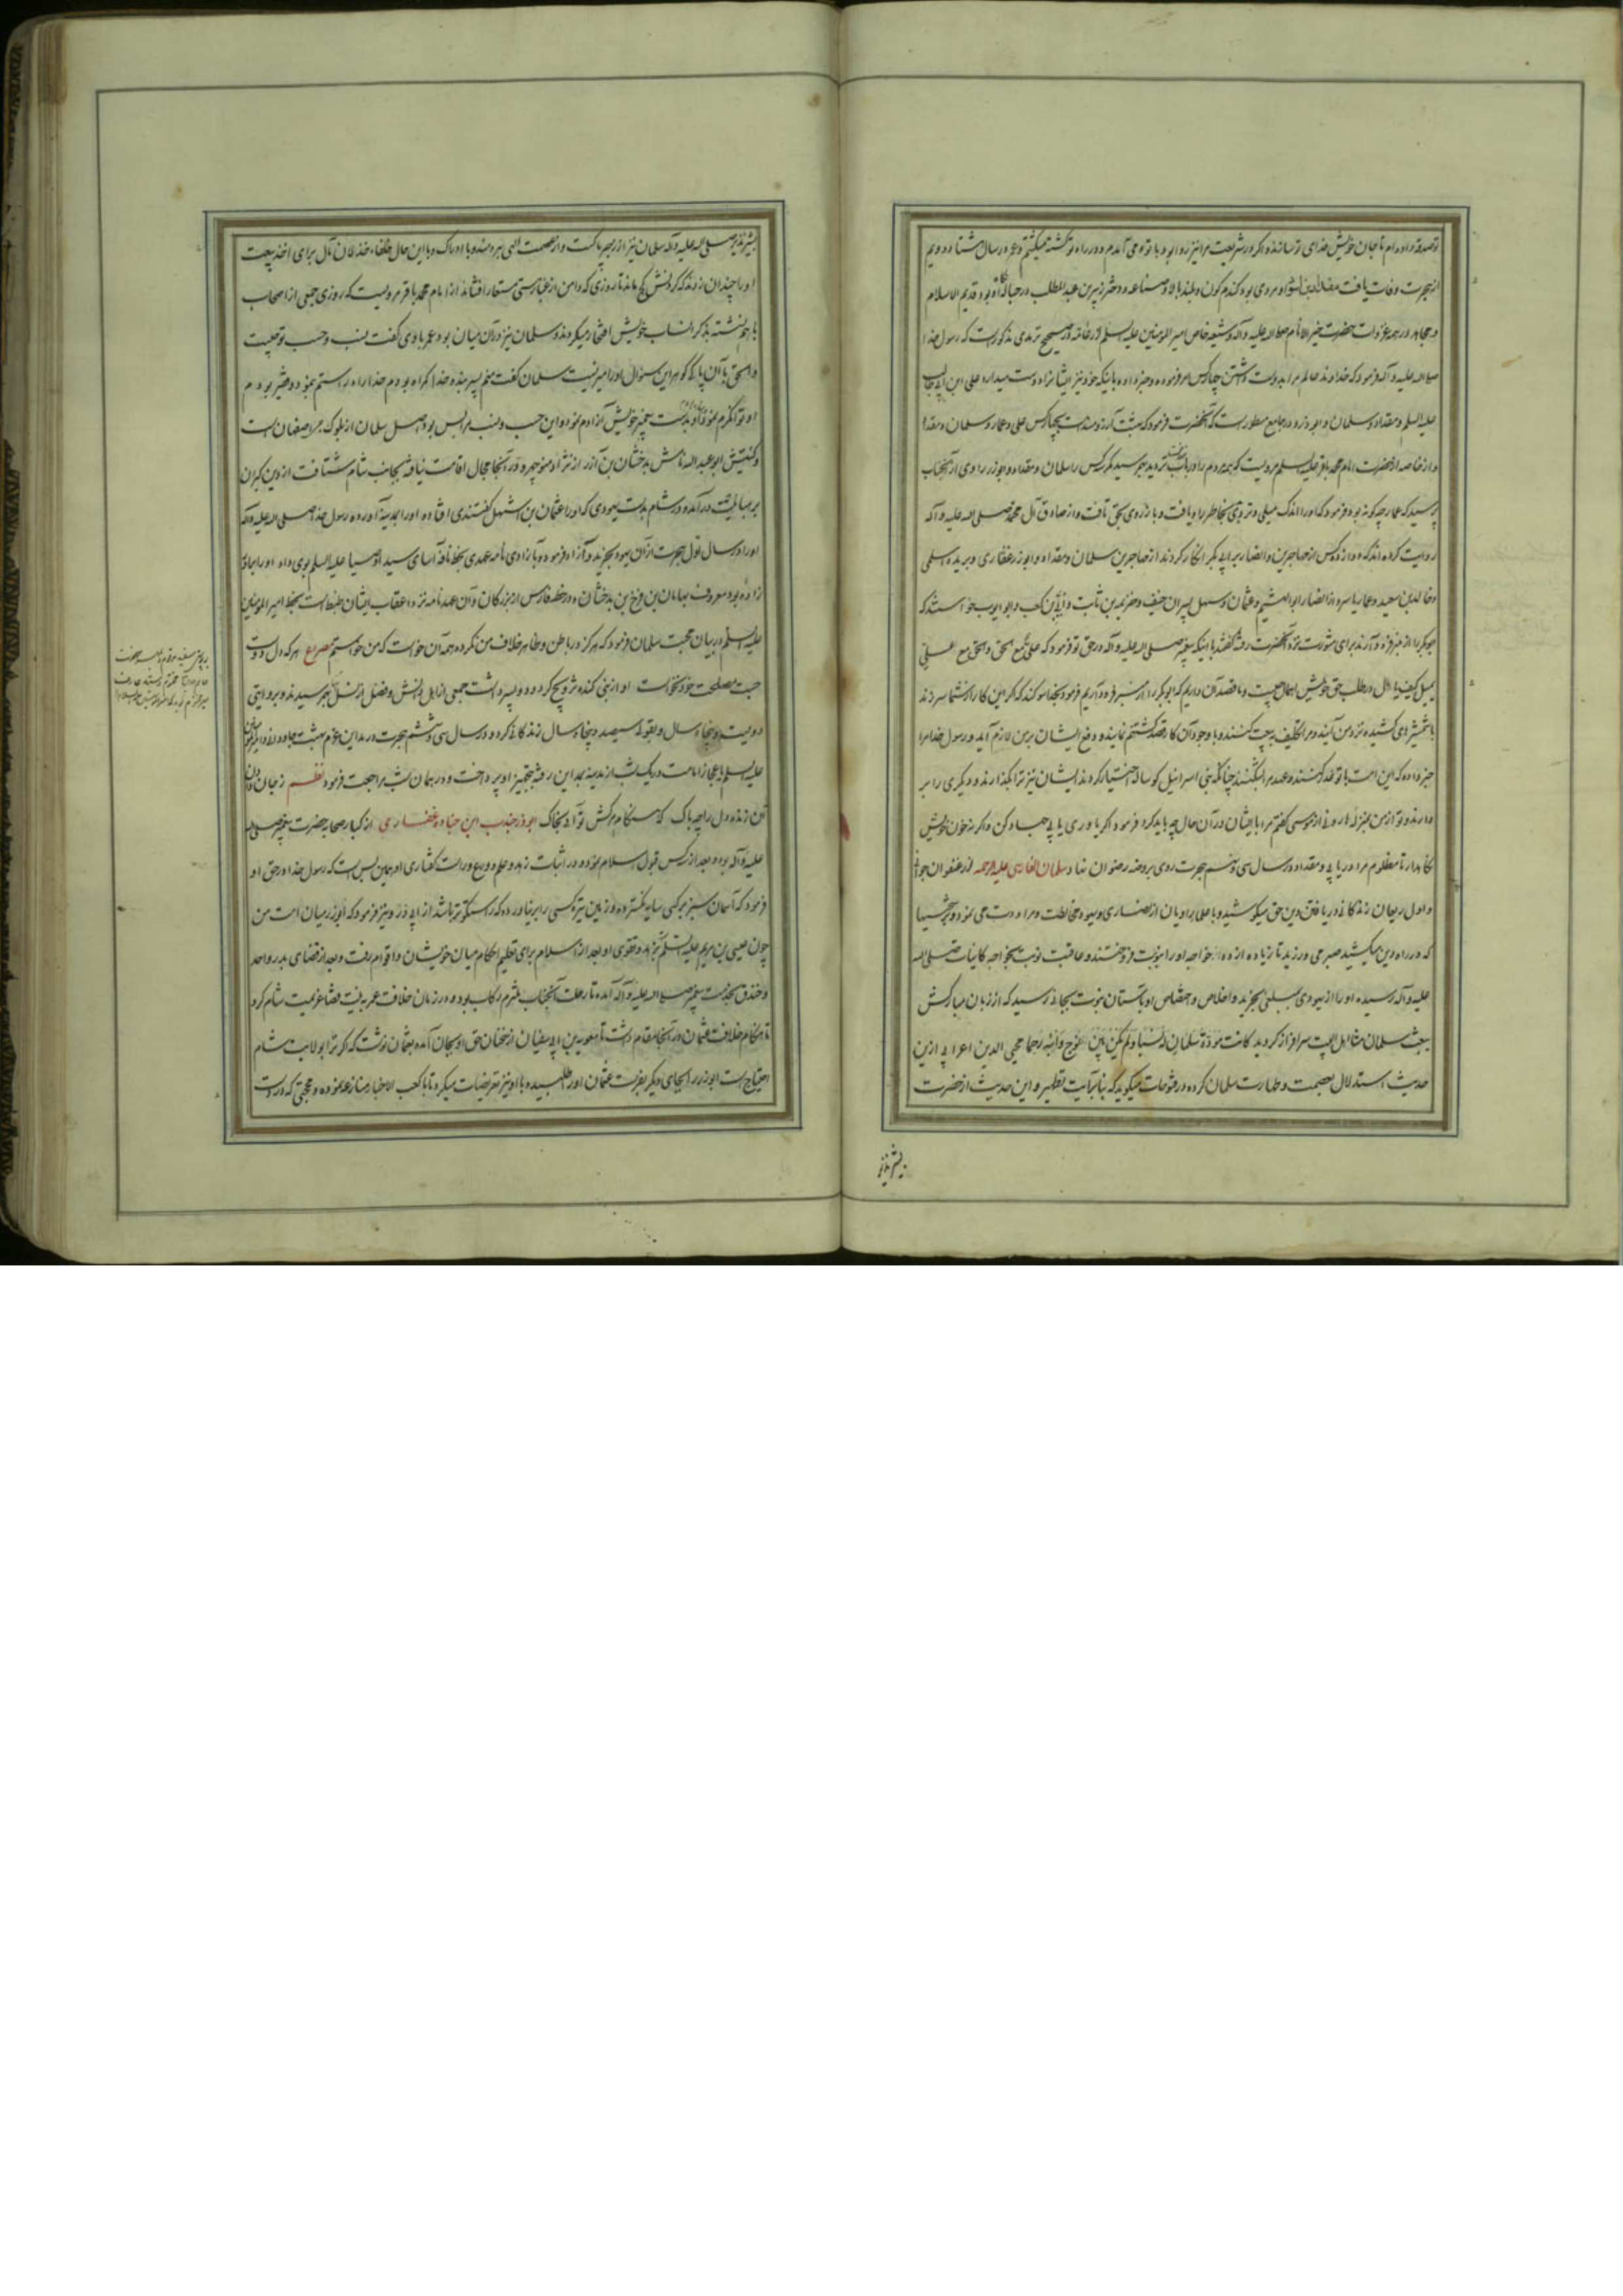 تو صدقه داده ام تا جان خویش فدای تو سازند و اگر در شریعت مرا نیز روا بود با تو می آمدم و در راه تو کشته میگشتم و در سال هشتاد و دویم
از هجرت وفات یافت مقداد بن اسود او مردی بود گندم کون و بلند بالا و ضباعه دختر زبیر بن عبد المطلب در حباله او بود قدیم الاسلام
و مجاهد در همه غزوات حضرت خیر الانام صلی الله علیه و آله و شیعه خاص امیر المؤمنین علیه السلم در صحیح ترمدی مذکورست که رسول خدا
صلی الله علیه و آله فرمود که خداوند عالم مرا بدوست داشتن چهار کس امر فرموده و خبر داده باینکه خود نیز ایشانرا دوست میدارد علی ابن ابی طالب
علیه السلم و مقداد و سلمان و ابوذر و در جامع مسطورست که آنحضرت فرمود که بهشت آرزومندست بچهار کس علی و عمار و سلمان و مقداد
و از خاصه از حضرت امام محمد باقر علیه السلم مرویست که همه مردم را در باب تردید بهم رسید مگر سه کس را سلمان و مقداد و ابوذر راوی از آنجناب
پرسید که عمار چه گونه بود فرمود که او را اندک میلی و تردی بخاطر راه یافت و باز روی بحق تافت و از صادق آل محمد صلی الله علیه و آله
روایت کرده اند که دوازده کس از مهاجرین و انصار بر ابی بکر انکار کردند از مهاجرین سلمان و مقداد و ابوذر غفاری و بریده اسلمی
و خالد بن سعید و عمار یاسر و از انصار ابو الهیثم و عثمان و سهل پسران حنیف و خزیمه بن ثابت و ابی بن کعب و ابو ایوب خواستند که
ابوبکر را از منبر فرود آرند برای مشورت نزد آنحضرت رفته گفتند با اینکه پیغمبر صلی الله علیه و آله در حق تو فرمود که علی مع الحق و الحق مع العلی
یمیل کیف مال در طلب حق خویش اهمال چیست و ما قصد آن داریم که ابوبکر را از منبر فرود آریم فرمود بخدا سوگند که اگر این کار از شما سر زند
با شمشیرهای کشیده نزد من آیند و مرا تکلیف بیعت کنند و با وجود آن کار قصد کشتنم نمایند و دفع ایشان بر من لازم آید و رسول خدا مرا
خبر داده که این امت با تو غدر کنند و عهد مرا بشکنند چنانکه بنی اسرائیل گوساله اختیار کردند ایشان نیز ترا بگذارند و دیگری را بر
دارند و تو از من بمنزله هارونی از موسی گفتم مرا با ایشان در آن حال چه باید کرد فرمود اگر یاوری یابی جهاد کن و اگر نه خون خویش
نگاهدار تا مظلوم مرا دریابی و مقداد در سال سی و سیم هجرت روی بروضه رضوان نهاد سلمان الفارسی علیه الرحمه از عنفوان جوانی
و اول ریعان زندگانی در یافتن دین حق میکوشید و با علما و راویان از نصاری و یهود مخالطت و مراودت می نمود و بر سختیها
که در راه دین میکشید صبر می ورزید تا زیاده از ده خواجه او را بنوبت فروختند و عاقبت نوبت بخواجه کائنات صلی الله
علیه و آله رسیده او را از یهودی بمبلغی بخرید و اخلاص و اختصاص او بآستان نبوت بجائی رسید که از زبان مبارکش
بیعت سلمان منا اهل البیت سرافراز گردید کانت مودة سلمان له نسبا و لم یکن بین نوح و ابنه رحما محیی الدین اعرابی ازین
حدیث استدلال بعصمت و طهارت سلمان کرده در فتوحات میگوید که بنا بر آیت تطهیر و این حدیث از حضرت
بشیر نذیر
بشیر نذیر صلی الله علیه و آله سلمان نیز از رجس پاکست و از عصمت الهی بهره مند و با ادراک و با این حال خلفاء خذلان مآل برای اخذ بیعت
او را چندان زدند که گردنش کج ماند تا روزی که دامن از غبار هستی مستعار افشاند از امام محمد باقر مرویست که روزی جمعی از اصحاب
باهم نشسته بذکر انساب خویش افتخار میکردند و سلمان نیز در آن میان بود عمر با وی گفت نسب و حسب تو چیست
و اسحق با آن پاک گوهر این سئوال او را امیر نیست سلمان گفت منم پسر بنده خدا گمراه بودم خدا راه راستم نمود درویش بودم
او توانگرم نمود و بدست پیغمبر خویش آزادم نمود و این حسب و نسب مرا بس بود اصل سلمان از بلوک اصفهان است
و کنیتش ابو عبد الله نامش بدخشان بن آذر از نژاد منوچهر و در آنجا مجال اقامت نیافته بجانب شام شتافت از دین کبران
برهبانیت در آمده و در شام بدست یهودی که او را عثمان بن اشهل گفتندی افتاده او را بمدینه آورده رسول خدا صلی الله علیه و آله
او را در سال اول هجرت از آن یهود بخرید و آزاد فرموده و با زادی نامه عهدی بخط سید اوصیا علیه السلم بوی داد او را برادر
زاده بود معروف بماهان بن فرخ بن بدخشان و در خطه فارس از بزرگان و آن عهد نامه نزد اعقاب ایشان ضبط است بخط امیر المؤمنین
علیه السلم در بیان محبت سلمان فرمود که هرگز در باطن و ظاهر خلاف من نکرده همه آن خواست که من خواستم مصرع هر که دل دوست
جست مصلحت خود نخواست او از بنی کنده تزویج کرد و دو پسر داشت جمعی از اهل دانش و فضل از نسل بهم رسیدند و بروایتی
دویست و پنجاه سال و بقولی سیصد و پنجاه سال زندگانی کرد و در سال سی و ششم هجرت در مداین عزم بهشت جاودانی امیر المؤمنین
علیه السلم باعجاز امامت در یک شب از مدینه بمداین رفته بتجهیز او پرداخت و در همان شب مراجعت فرمود نظم ز جان
آن زنده دل را چه باک که هنگام مرگش تو آئی بخاک ابوذر جندب ابن جناده غفاری از کبار صحابه حضرت پیغمبر صلی الله
علیه و آله بود و بعد از سه کس قبول اسلام نموده و در اثبات زهد و علم و ورع و راست گفتاری او همین بس است که رسول خدا در حق او
فرمود که آسمان سبز بر کسی سایه نگسترده و زمین تیره کسی را بر نیاورده که راستگوتر باشد از ابی ذر و نیز فرمود که ابوذر میان امت من
چون عیسی بن مریم علیه السلم بزهد و تقوی او بعد از اسلام برای تعلیم احکام میان خویشان و اقوام رفت و بعد از قضای بدر و احد
و خندق بخدمت پیغمبر صلی الله علیه و آله آمده تا رحلت آنجناب ملتزم رکاب بود و در زمان خلافت عمر بنیت غزا عزیمت شام کرد
تا هنگام خلافت عثمان در آنجا مقام داشت تا معویه بن ابی سفیان از سخنان حق او بجان آمده بعثمان نوشت که اگر ترا بولایت شام
احتیاج است ابوذر را بجای دیگر بفرست عثمان او را طلبیده با او نیز تعرضات میکرد تا با کعب الاحبار منازعه نموده و محجتی که در دست